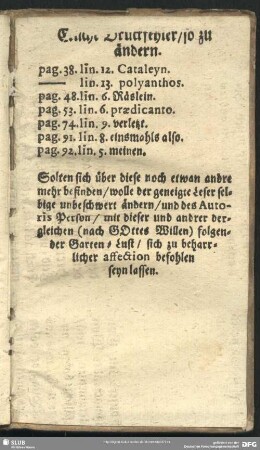 Etliche Druckfehler/so zu
ändern.
pag. 38. lin. 12. Cataleyn.
lin. 13. polyanthos.
pag. 48. lin. 6. Räslein.
pag. 53. lin. 6. prædicanto.
pag. 74. lin. 9. verletzt.
pag. 91. lin. 8. einsmohls also.
pag. 92. lin. 5. meinen.
Solten sich über diese noch etwan andre
mehr befinden/wolle der geneigte Leser sel-
bige unbeschwert ändern/und des Auto-
ris Person/mit dieser und andrer der-
gleichen (nach GOttes Willen) folgen-
der Garten-Lust/sich zu beharr-
licher affection befohlen
seyn lassen.
SLUB
DFG